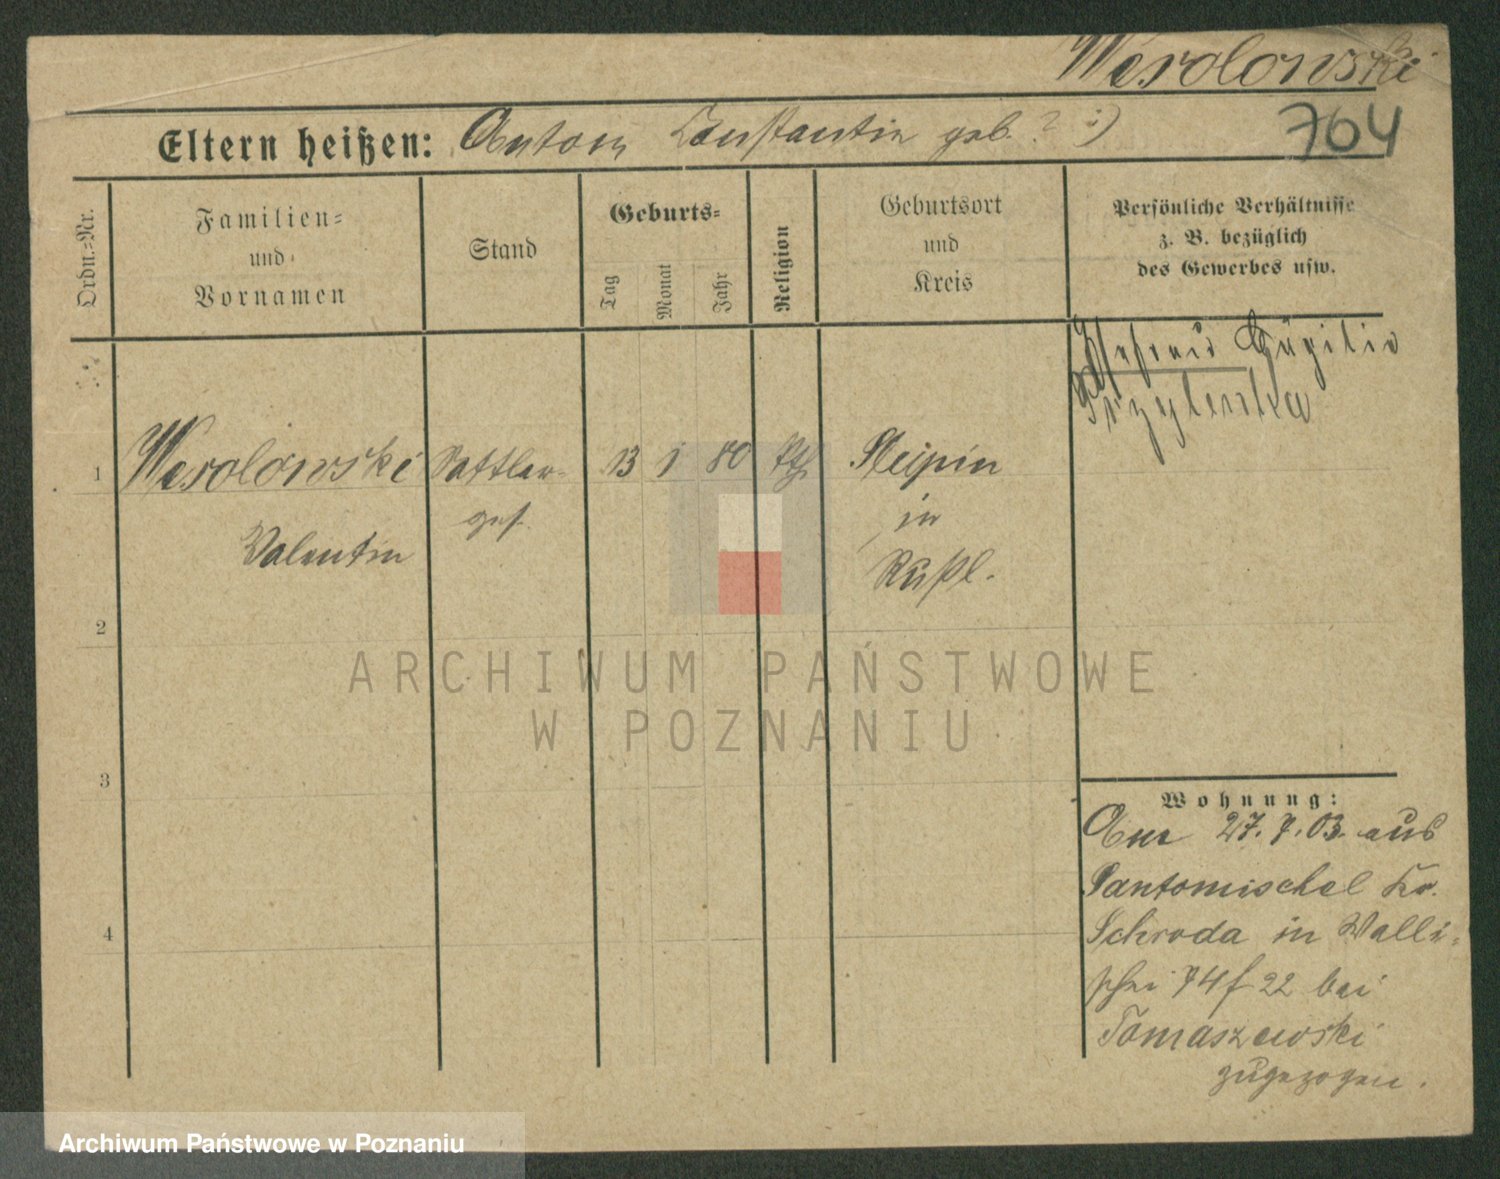 Werolowski
764
Eltern heißen: Anton Konstantin geb. ? :)
Ordn.=Nr.
Familien=
und
Vornamen
Stand
Geburts=
Tag
Monat
Jahr
Religion
Geburtsort
und
Kreis
Persönliche Verhältnisse
z. B. bezüglich
des Gewerbes usw.
1
Werolowski
Valentin
Sattler=
ges.
13 1 80 kth
in
Rußl.
2
3
4
Wohnung:
Am 27.7.03. aus
Santomischel Kr.
Schroda in Walli=
schei 74 f 22 bei
Tomaszewski
zugezogen.
ARCHIWUM PAŃSTWOWE
W POZNANIU
Archiwum Państwowe w Poznaniu